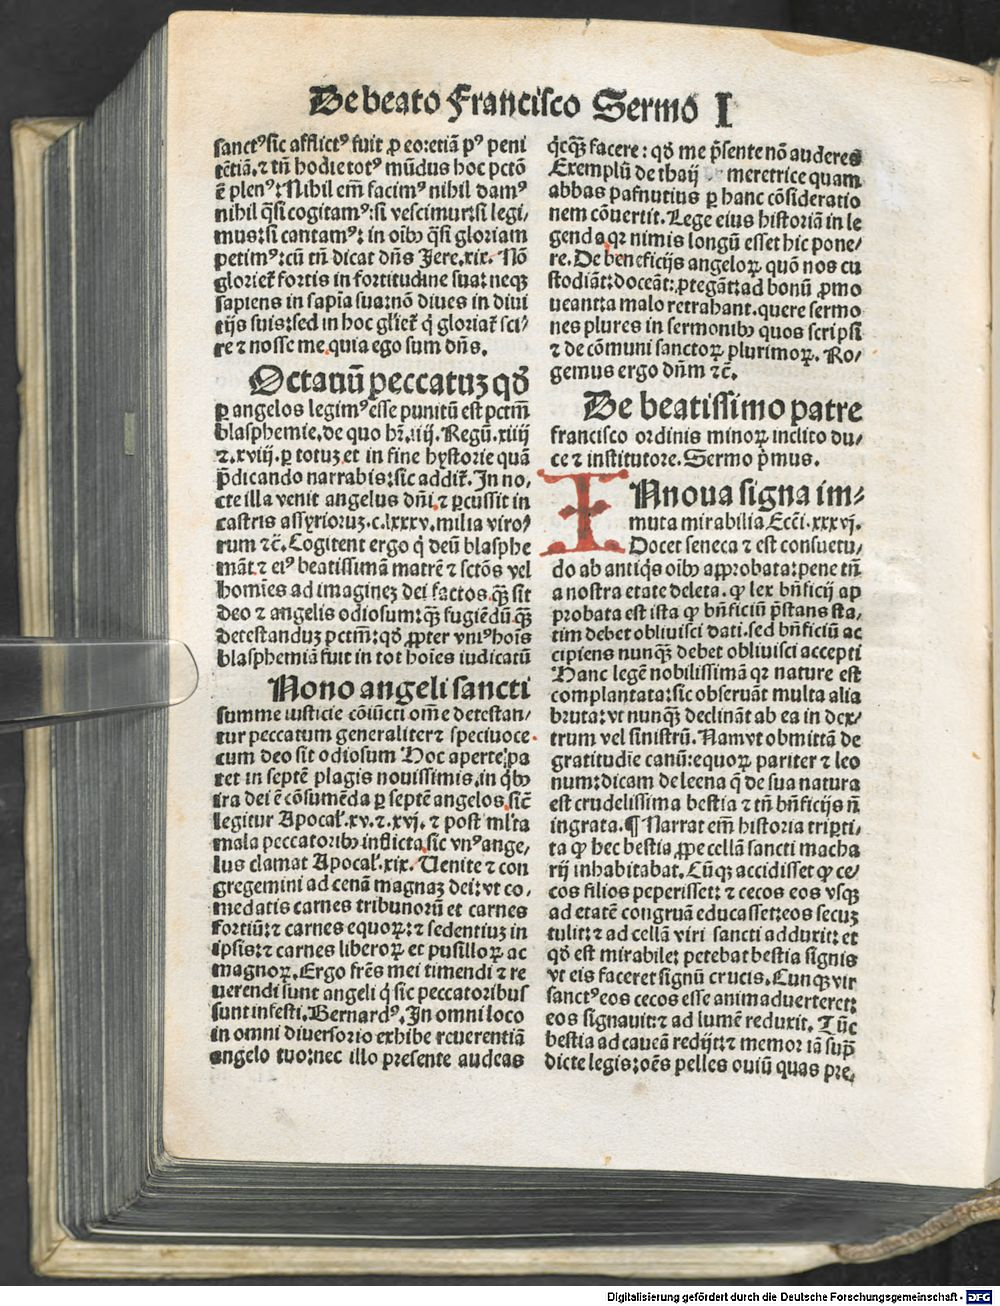 De beato Francisco Sermo I
sanctꝰ sic afflictꝰ fuit ꝓ eo: etiā pꝰ peni
tētiā. ⁊ tn̄ hodie totꝰ mūdus hoc pctō
ē plenꝰ: Nihil em̄ facimꝰ nihil damꝰ
nihil q̄si cogitamꝰ: si vescimur: si legi/
mus: si cantamꝰ: in oībꝰ q̄si gloriam
petimꝰ: cū tn̄ dicat dn̄s Jere. ix. Nō
glorief fortis in fortitudine sua: neqꝫ
sapiens in sapīa sua: nō diues in diui
tijs suis: sed in hoc gl̄ief q̇ gloriaf sci/
re ⁊ nosse me. quia ego sum dn̄s.
Octauū peccatuꝫ qđ
ꝑ angelos legimꝰ esse punitū est pctm̄
blasphemie. de quo hr̄. iiij. Regū. xiiij
⁊. xviij. ꝑ totuꝫ. et in fine hystorie quā
p̄dicando narrabis: sic addif. In no,
cte illa venit angelus dn̄i. ⁊ ꝑcussit in
castris assyrioruꝫ. c. lxxxv. milia viro/
rum ⁊c̄. Cogitent ergo q̇ deū blasphe
māt. ⁊ eiꝰ beatissimā matrē ⁊ sctōs vel
homīes ad imagineꝫ dei factos. qꝫ̄ sit
deo ⁊ angelis odiosum: qꝫ̄ fugiēdū. qꝫ̄
detestanduꝫ pctm̄: qđ ꝓpter vniꝰ hoīs
blasphemiā fuit in tot hoīes iudicatū
Nono angeli sancti
summe iusticie cōiūcti om̄e detestan/
tur peccatum generaliter ⁊ speciuoce
cum deo sit odiosum Hoc aperte pa
tet in septē plagis nouissimis. in q̇bꝰ
ira dei ē cōsumēda ꝑ septē angelos. sic̄
legitur Apocał. xv. ⁊. xvj. ⁊ post ml̄ta
mala peccatoribꝰ inflicta. sic vnꝰ ange,
lus clamat Apocał. xix. Uenite ⁊ con
gregemini ad cenā magnaꝫ dei: vt co,
medatis carnes tribunorū et carnes
fortiū: ⁊ carnes equoꝝ: ⁊ sedentiuꝫ in
ipsis: ⁊ carnes liberoꝝ et pusilloꝝ ac
magnoꝝ. Ergo frēs mei timendi ⁊ re
uerendi sunt angeli q̇ sic peccatoribus
sunt infesti. Bernardꝰ. In omni loco
in omni diuersorio exhibe reuerentiā
angelo tuo: nec illo presente audeas
q̇cqꝫ̄ facere: qđ me p̄sente nō auderes
Exemplū de thaij meretrice quam
abbas pafnutius ꝑ hanc cōsideratio
nem cōuertit. Lege eius historiā in le
genda qꝛ nimis longū esset hic pone/
re. De beneficijs angeloꝝ quō nos cu
stodiāt: doceāt: ꝓtegāt: ad bonū ꝓmo
ueant: a malo retrahant. quere sermo
nes plures in sermonibꝰ quos scripsi
⁊ de cōmuni sanctoꝝ plurimoꝝ. Ro/
gemus ergo dn̄m ⁊c̄.
De beatissimo patre
francisco ordinis minoꝝ inclito du/
ce ⁊ institutore. Sermo p̄mus.
INnoua signa im/
muta mirabilia Ecci. xxxvj.
Docet seneca ⁊ est consuetu/
do ab antiq̇s oībꝰ approbata: pene tn̄
a nostra etate deleta. ꝙ lex bn̄ficij ap
probata est ista ꝙ bn̄ficiū p̄stans sta,
tim debet obliuisci dati. sed bn̄ficiū ac
cipiens nunqꝫ̄ debet obliuisci accepti
Hanc legē nobilissimā qꝛ nature est
complantata: sic obseruāt multa alia
bruta: vt nunqꝫ̄ declināt ab ea in dex/
trum vel sinistrū. Nam vt obmittā de
gratitudīe canū: equoꝝ pariter ⁊ leo
num: dicam de leena q̄ de sua natura
est crudelissima bestia ⁊ tn̄ bn̄ficijs n̄
ingrata. ¶ Narrat em̄ historia triꝑti/
ta ꝙ hec bestia ꝓpe cellā sancti macha
rij inhabitabat. Cūqꝫ accidisset ꝙ ce/
cos filios peperisset: ⁊ cecos eos vsqꝫ
ad etatē congruā educasset: eos secuꝫ
tulit: ⁊ ad cellā viri sancti adduxit: et
qđ est mirabile: petebat bestia signis
vt eis faceret signū crucis. Cunqꝫ vir
sanctꝰ eos cecos esse animaduerteret:
eos signauit: ⁊ ad lumē reduxit. Tūc
bestia ad caueā redijt: ⁊ memor iā suꝑ
dicte legis: oēs pelles ouiū quas pre,
Digitalisierung gefördert durch die Deutsche Forschungsgemeinschaft - DFG